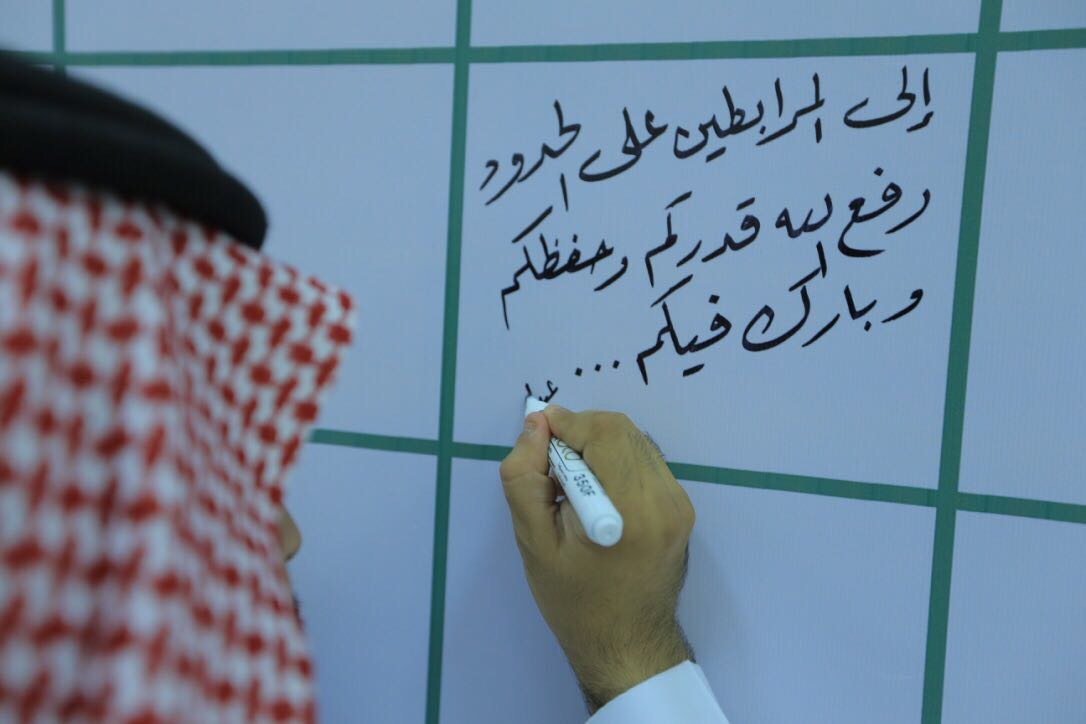 إلى المرابطين على الحدود
رفع الله قدركم وحفظكم
وبارك فيكم ...
350F